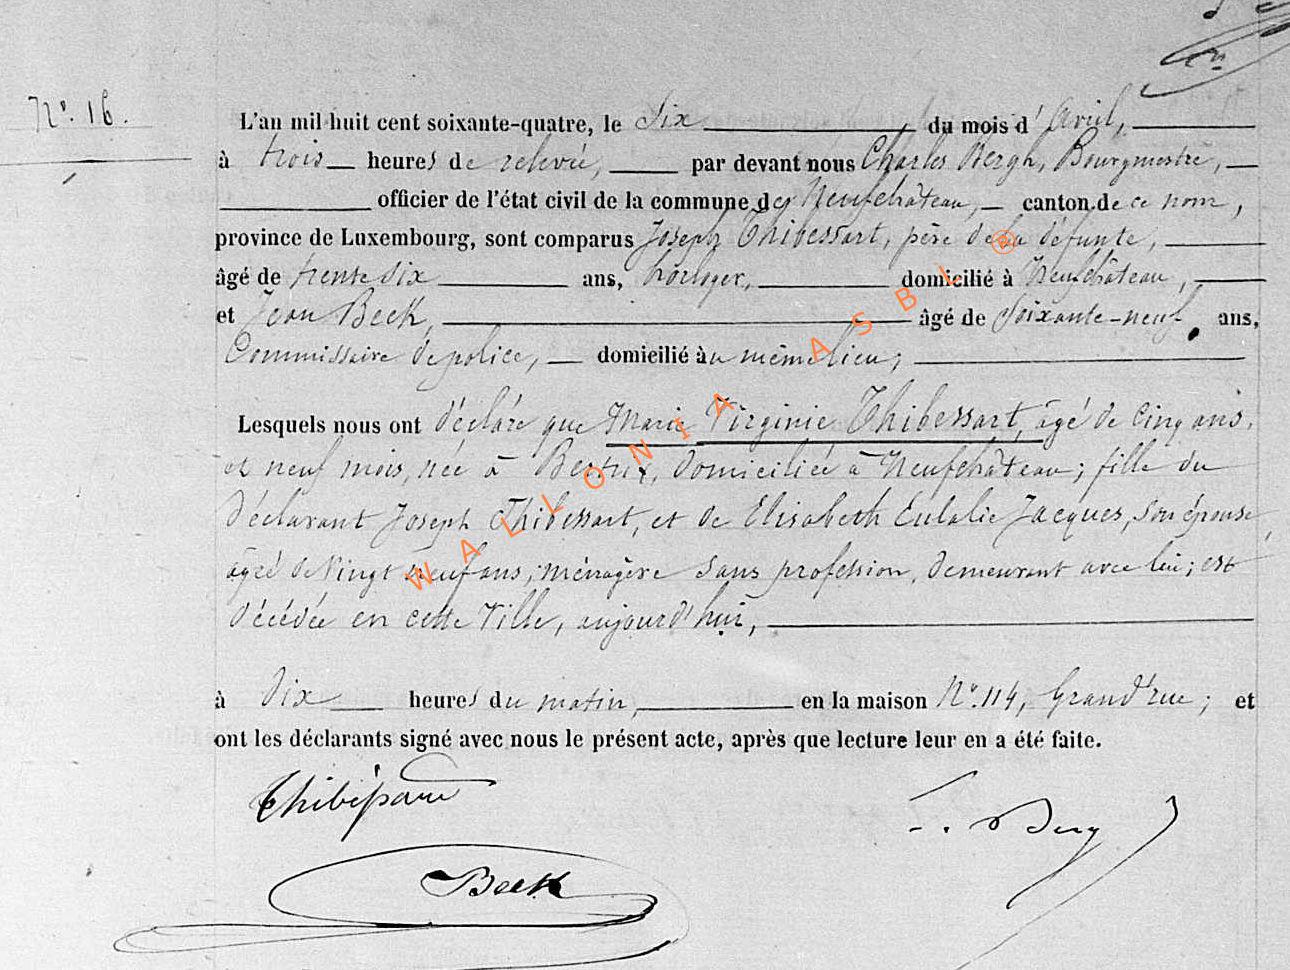 N°. 16.
L'an mil huit cent soixante-quatre, le Six du mois d'Avril,
à trois heures de relevée, par devant nous Charles Bergh, Bourgmestre,
officier de l'état civil de la commune de Neufchâteau, canton de ce nom,
province de Luxembourg, sont comparus Joseph Thibessart, père de la défunte,
âgé de trente six ans, horloger, domicilié à Neufchâteau,
et Jean Beck, âgé de Soixante-neuf ans,
Commissaire de police, domicilié au même lieu;
Lesquels nous ont déclaré que Marie Virginie Thibessart, âgé de Cinq ans,
et neuf mois, née à Bertrix, domiciliée à Neufchâteau; fille du
déclarant Joseph Thibessart, et de Elisabeth Eulalie Jacques, son épouse,
âgée de Vingt neuf ans, ménagère sans profession, demeurant avec lui; est
décédée en cette Ville, aujourd'hui,
à dix heures du matin, en la maison N°. 114, Grand'rue; et
ont les déclarants signé avec nous le présent acte, après que lecture leur en a été faite.
Beck
WALLONIA ASBL ®